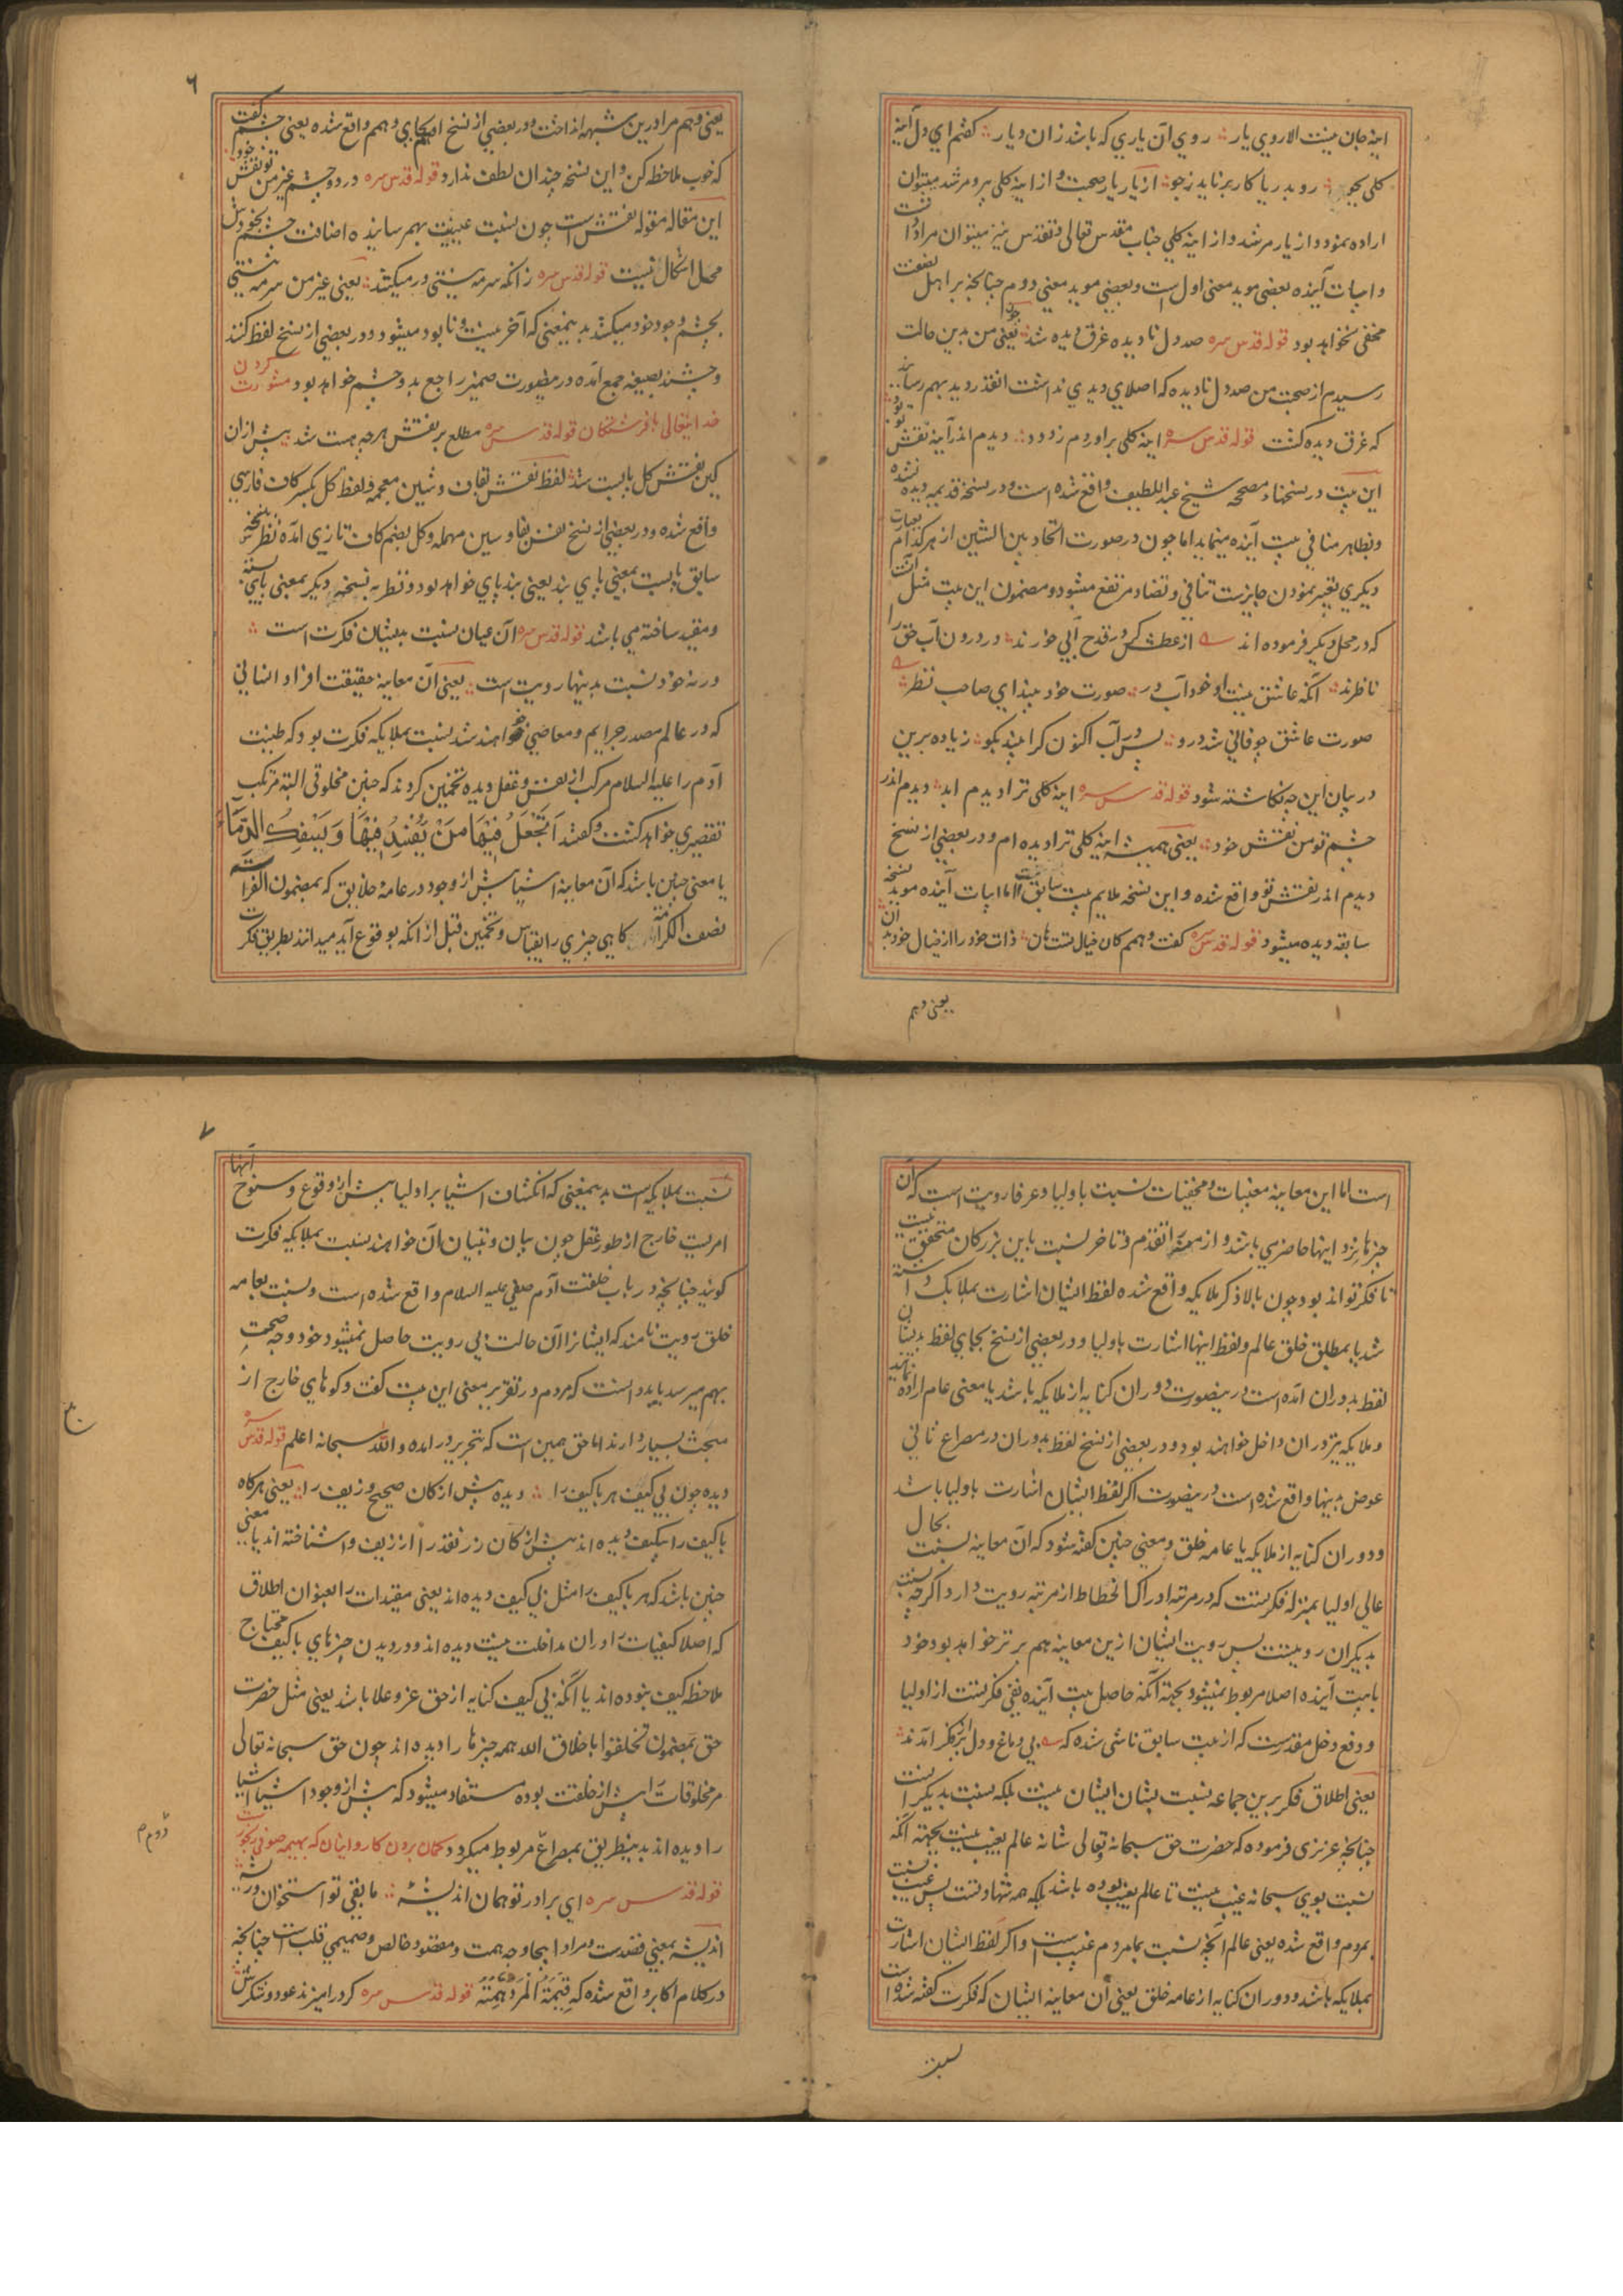 اینه جان نیست الا روی یار ؞ روی آن یاری که باشد زان دیار ؞ کفتم ای دل آینه
کلی بجو ؞ رو بدریا کار برناید ز جو ؞ از یار یار صحبت و از اینه کلی پیر و مرشد میتوان
اراده نمود و از یار مرشد و از اینه کلی جناب مقدس تعالی و تقدس نیز میتوان مراد داشت
و ابیات آینده بعضی موید معنی اول است و بعضی موید معنی دوم چنانچه بر اهل
مخفی نخواهد بود قوله قدس سره صد دل نادیده غرق دیده شد ؞ یعنی من بدین حالت
رسیدم از صحبت من صد دل نادیده که اصلای دیدی نداشت انقدر دید بهم رساند
که غرق دیده کشت قوله قدس سره اینه کلی براوردم ز دود ؞ دیدم اندر آینه نقش تو بود
این بیت در نسخهاء مصححه شیخ عبد اللطیف واقع شده است و در نسخه قدیمه دیده نشده
و بظاهر منافی بیت آینده مینماید اما چون در صورت اتحاد بین الشیئین از هر کدام بعبارت
دیکری تعبیر نمودن جایزست تنافی و تضاد مرتفع میشود و مضمون این بیت مثل آنست
که در محل دیکر فرموده اند از عطش کر در قدح آبی خورند ؞ در درون آب حق را
ناظرند ؞ آنکه عاشق نیست او خود آب در ؞ صورت خود بیند ای صاحب نظر ؞
صورت عاشق چو فانی شد درو ؞ پس در آب اکنون کرا بیند بکو ؞ زیاده برین
در بیان این چه نکاشته شود قوله قدس سره اینه کلی ترا دیدم ابد ؞ دیدم اندر
چشم تو من نقش خود ؞ یعنی همیشه اینه کلی ترا دیده ام و در بعضی از نسخ
دیدم اندر نقش تو واقع شده و این نسخه ملایم بیت سابق است اما ابیات آینده موید نسخه
سابقه دیده میشود قوله قدس سره کفت و همم کان خیال تست هان ؞ ذات خود را از خیال خود بدان
یعنی وهم
٦
یعنی وهم مرا درین شبهه انداخت و در بعضی از نسخ بجای وهمم واقع شده یعنی چشمم کفت
که خوب ملاحظه کن و این نسخه چندان لطف ندارد قوله قدس سره در دو چشم غیر من تو نقش خود
این مقاله مقوله نقش است چون نسبت عینیت بهم رسانیده اضافت چشم بخودش
محل اشکال نیست قوله قدس سره زانکه سرمه نیستی در میکشد ؞ یعنی غیر من سرمه نیستی
بچشم وجود خود میکشد بدینمعنی که آخر نیست و نابود میشود و در بعضی از نسخ لفظ کنند
و چشند بصیغه جمع آمده درینصورت ضمیر راجع بدو چشم خواهد بود مشورت کردن
خدایتعالی با فرشتکان قوله قدس سره مطلع بر نقش هر چه هست شد ؞ پیش ازان
کین نقش کل پابست شد لفظ نقش بقاف و شین معجمه و لفظ کل بکسر کاف فارسی
واقع شده و در بعضی از نسخ نفس بفا و سین مهمله و کل بضم کاف تازی آمده نظر بنسخه
سابق پابست بمعنی پای بند یعنی بند پای خواهد بود و نظر به نسخه دیکر بمعنی پای بسته
و مقید ساخته می باشد قوله قدس سره آن عیان نسبت بدیشان فکرت است ؞
ورنه خود نسبت بدینها رویت است ؞ یعنی آن معاینه حقیقت افراد انسانی
که در عالم مصدر جرایم و معاصی خواهند شد نسبت بملایکه فکرت بود که طینت
آدم را علیه السلام مرکب از نفس و عقل دیده تخمین کردند که چنین مخلوقی البته مرتکب
تقصیری خواهد کشت و کفتند اَتَجْعَلُ فِيْهَا مَنْ يُفْسِدُ فِيْهَا وَيَسْفِكُ الدِّمَاءَ
یا معنی چنین باشد که آن معاینه اشیا پیش از وجود در عامه خلایق که بمضمون الفراسة
نصف الکرامة کاهی چیزی را بقیاس و تخمین قبل از آنکه بوقوع آید میدانند بطریق فکرت
است اما این معاینه مغیبات و مخفیات نسبت باولیا و عرفا رویت است که آن
چیزها نزد اینها حاضر می باشد و از ممر تقدم و تاخر نسبت باین بزرکان متحقق نیست
تا فکر تواند بود چون بالا ذکر ملایکه واقع شده لفظ ایشان اشارت بملایک داشته
شد یا بمطلق خلق عالم و لفظ اینها اشارت باولیا و در بعضی از نسخ بجای لفظ بدیشان
لفظ بدوران آمده است درینصورت دوران کنایه از ملایکه باشد یا معنی عام اراده نمایند
و ملایکه نیز دران داخل خواهند بود و در بعضی از نسخ لفظ بدوران در مصراع ثانی
عوض بدینها واقع شده است درینصورت اکر لفظ ایشان اشارت باولیا باشد
و دوران کنایه از ملایکه یا عامه خلق و معنی چنین کفته شود که آن معاینه نسبت بحال
عالی اولیا بمنزله فکرتست که در مرتبه ادراک انحطاط از مرتبه رویت دارد اکرچه نسبت
بدیکران رویتست پس رویت ایشان ازین معاینه هم برتر خواهد بود خود
با بیت آینده اصلا مربوط نمیشود بجهة آنکه حاصل بیت آینده نفی فکرتست از اولیا
و دفع دخل مقدرست که از بیت سابق ناشی شده که بی دماغ و دل پر از فکر آمدند ؞
یعنی اطلاق فکر برین جماعه نسبت بشان ایشان نیست بلکه نسبت بدیکرانست
چنانچه عزیزی فرموده که حضرت حق سبحانه و تعالی شانه عالم بغیب نیست بجهة آنکه
نسبت بوی سبحانه غیب نیست تا عالم بغیب بوده باشد بلکه همه شهادتست پس غیب نسبت
بمردم واقع شده یعنی عالم آنچه نسبت بمامردم غیب است و اکر لفظ ایشان اشارت
بملایکه باشد و دوران کنایه از عامه خلق یعنی آن معاینه ایشان که فکرت کفته شده است
نسبت
٧
نسبت بملایکه است بدینمعنی که انکشاف اشیا بر اولیا پیش از وقوع و سنوح آنها
امریست خارج از طور عقل چون بیان و تبیان آن خواهند نسبت بملایکه فکرت
کویند چنانچه در باب خلقت آدم صفی علیه السلام واقع شده است و نسبت بعامه
خلق رویت نامند که ایشانرا آن حالت بی رویت حاصل نمیشود خود وجه صحت
بهم میرسد باید دانست که مردم در تقریر معنی این بیت کفت و کوهای خارج از
مبحث بسیار دارند اما حق همین است که بتحریر درامده و اللّه سبحانه اعلم قوله قدس سره
دیده چون بی کیف هر باکیف را ؞ دیده پیش از کان صحیح و زیف را ؞ یعنی هرکاه
باکیف را بیکیف دیده اند پیش از کان زر نقد را از زیف واشناخته اند یا معنی
چنین باشد که هر باکیف را مثل بی کیف دیده اند یعنی مقیدات را بعنوان اطلاق
که اصلا کیفیات را دران مداخلت نیست دیده اند و در دیدن چیزهای باکیف محتاج
ملاحظه کیف نبوده اند یا آنکه بی کیف کنایه از حق عز و علا باشد یعنی مثل حضرت
حق بمضمون تخلقوا باخلاق الله همه چیزها را دیده اند چون حق سبحانه تعالی
مر مخلوقات را پیش از خلقت بوده مستفاد میشود که پیش از وجود اشیا اشیا
را دیده اند بدینطریق بمصراع مربوط میکردد کمان بردن کاروانیان که بهیمه صوفی رنجورست
قوله قدس سره ای برادر تو همان اندیشه ؞ مابقی تو استخوان و ریشه ؞
اندیشه بمعنی قصدست و مراد اینجا وجه همت و مقصود خالص و صمیمی قلب است چنانچه
در کلام اکابر واقع شده که قِيمَةُ الْمَرْءِ هِمَّتُهُ قوله قدس سره کر درامیزند عود و شکرش ؞
دوم م